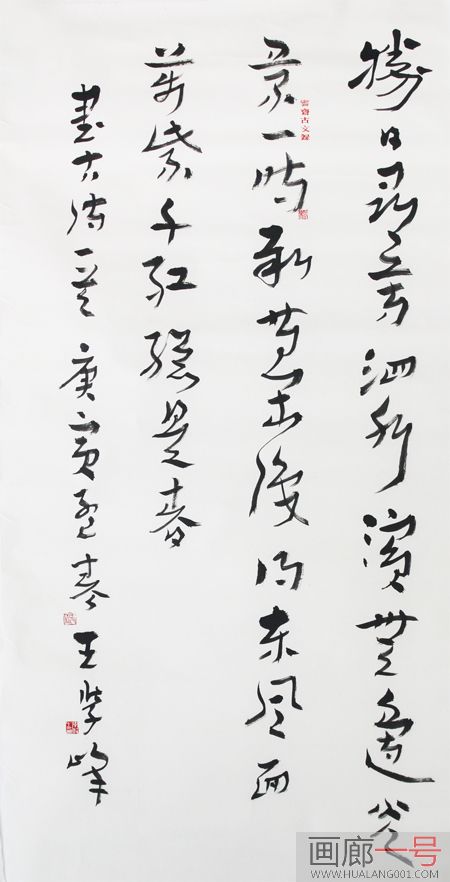 勝日尋芳泗水濱無邊光
景一時新等閑識得東風面
萬紫千紅總是春
書古詩一首庚寅孟春王學峰
画廊一号
WWW.HUALANG001.COM